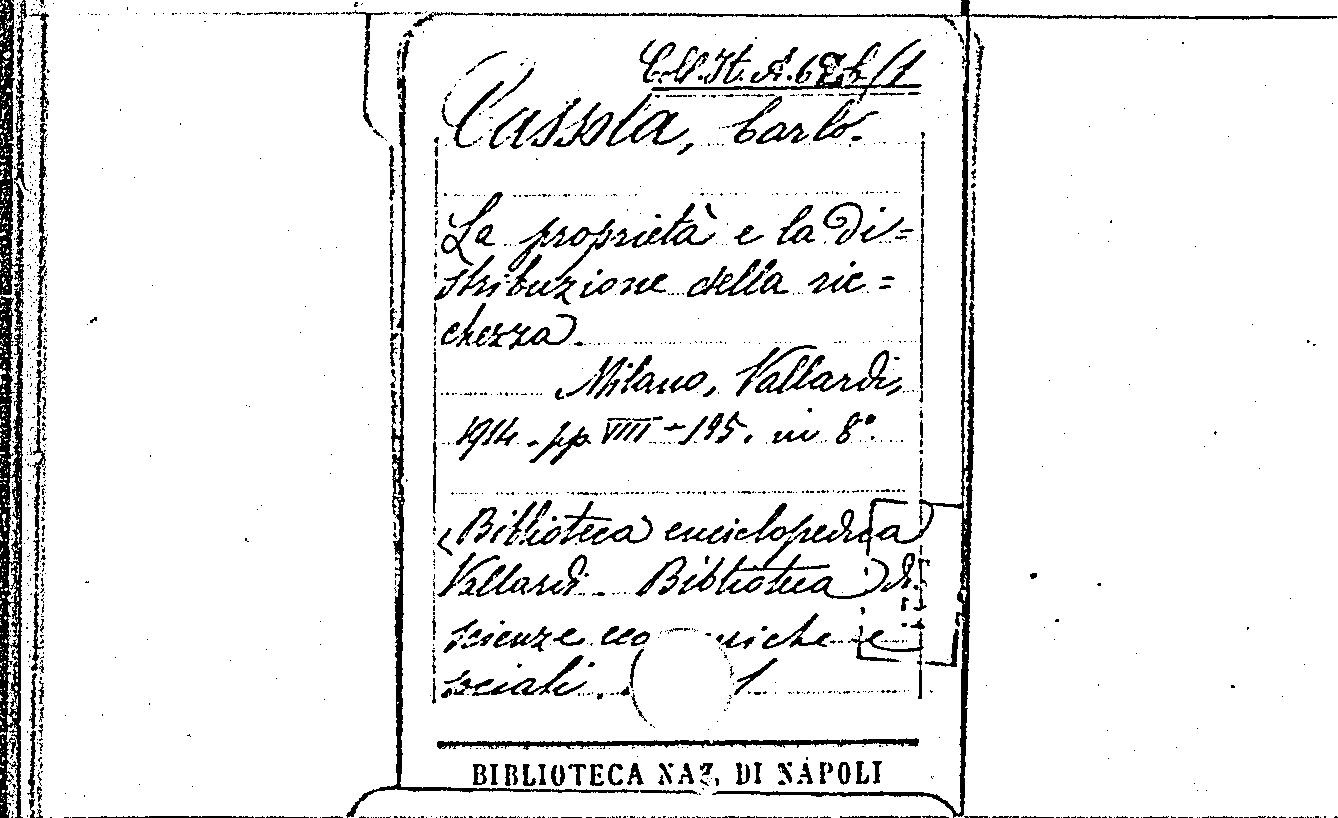 Coll. It. A. 68 b/1
Cassola, Carlo.
La proprietà e la di=
stribuzione della ric=
chezza.
Milano, Vallardi,
1914. pp. VIII-195. in 8°.
(Biblioteca enciclopedica
Vallardi. Biblioteca di
scienze eco miche e
sociali. 1
BIBLIOTECA NAZ. DI NAPOLI